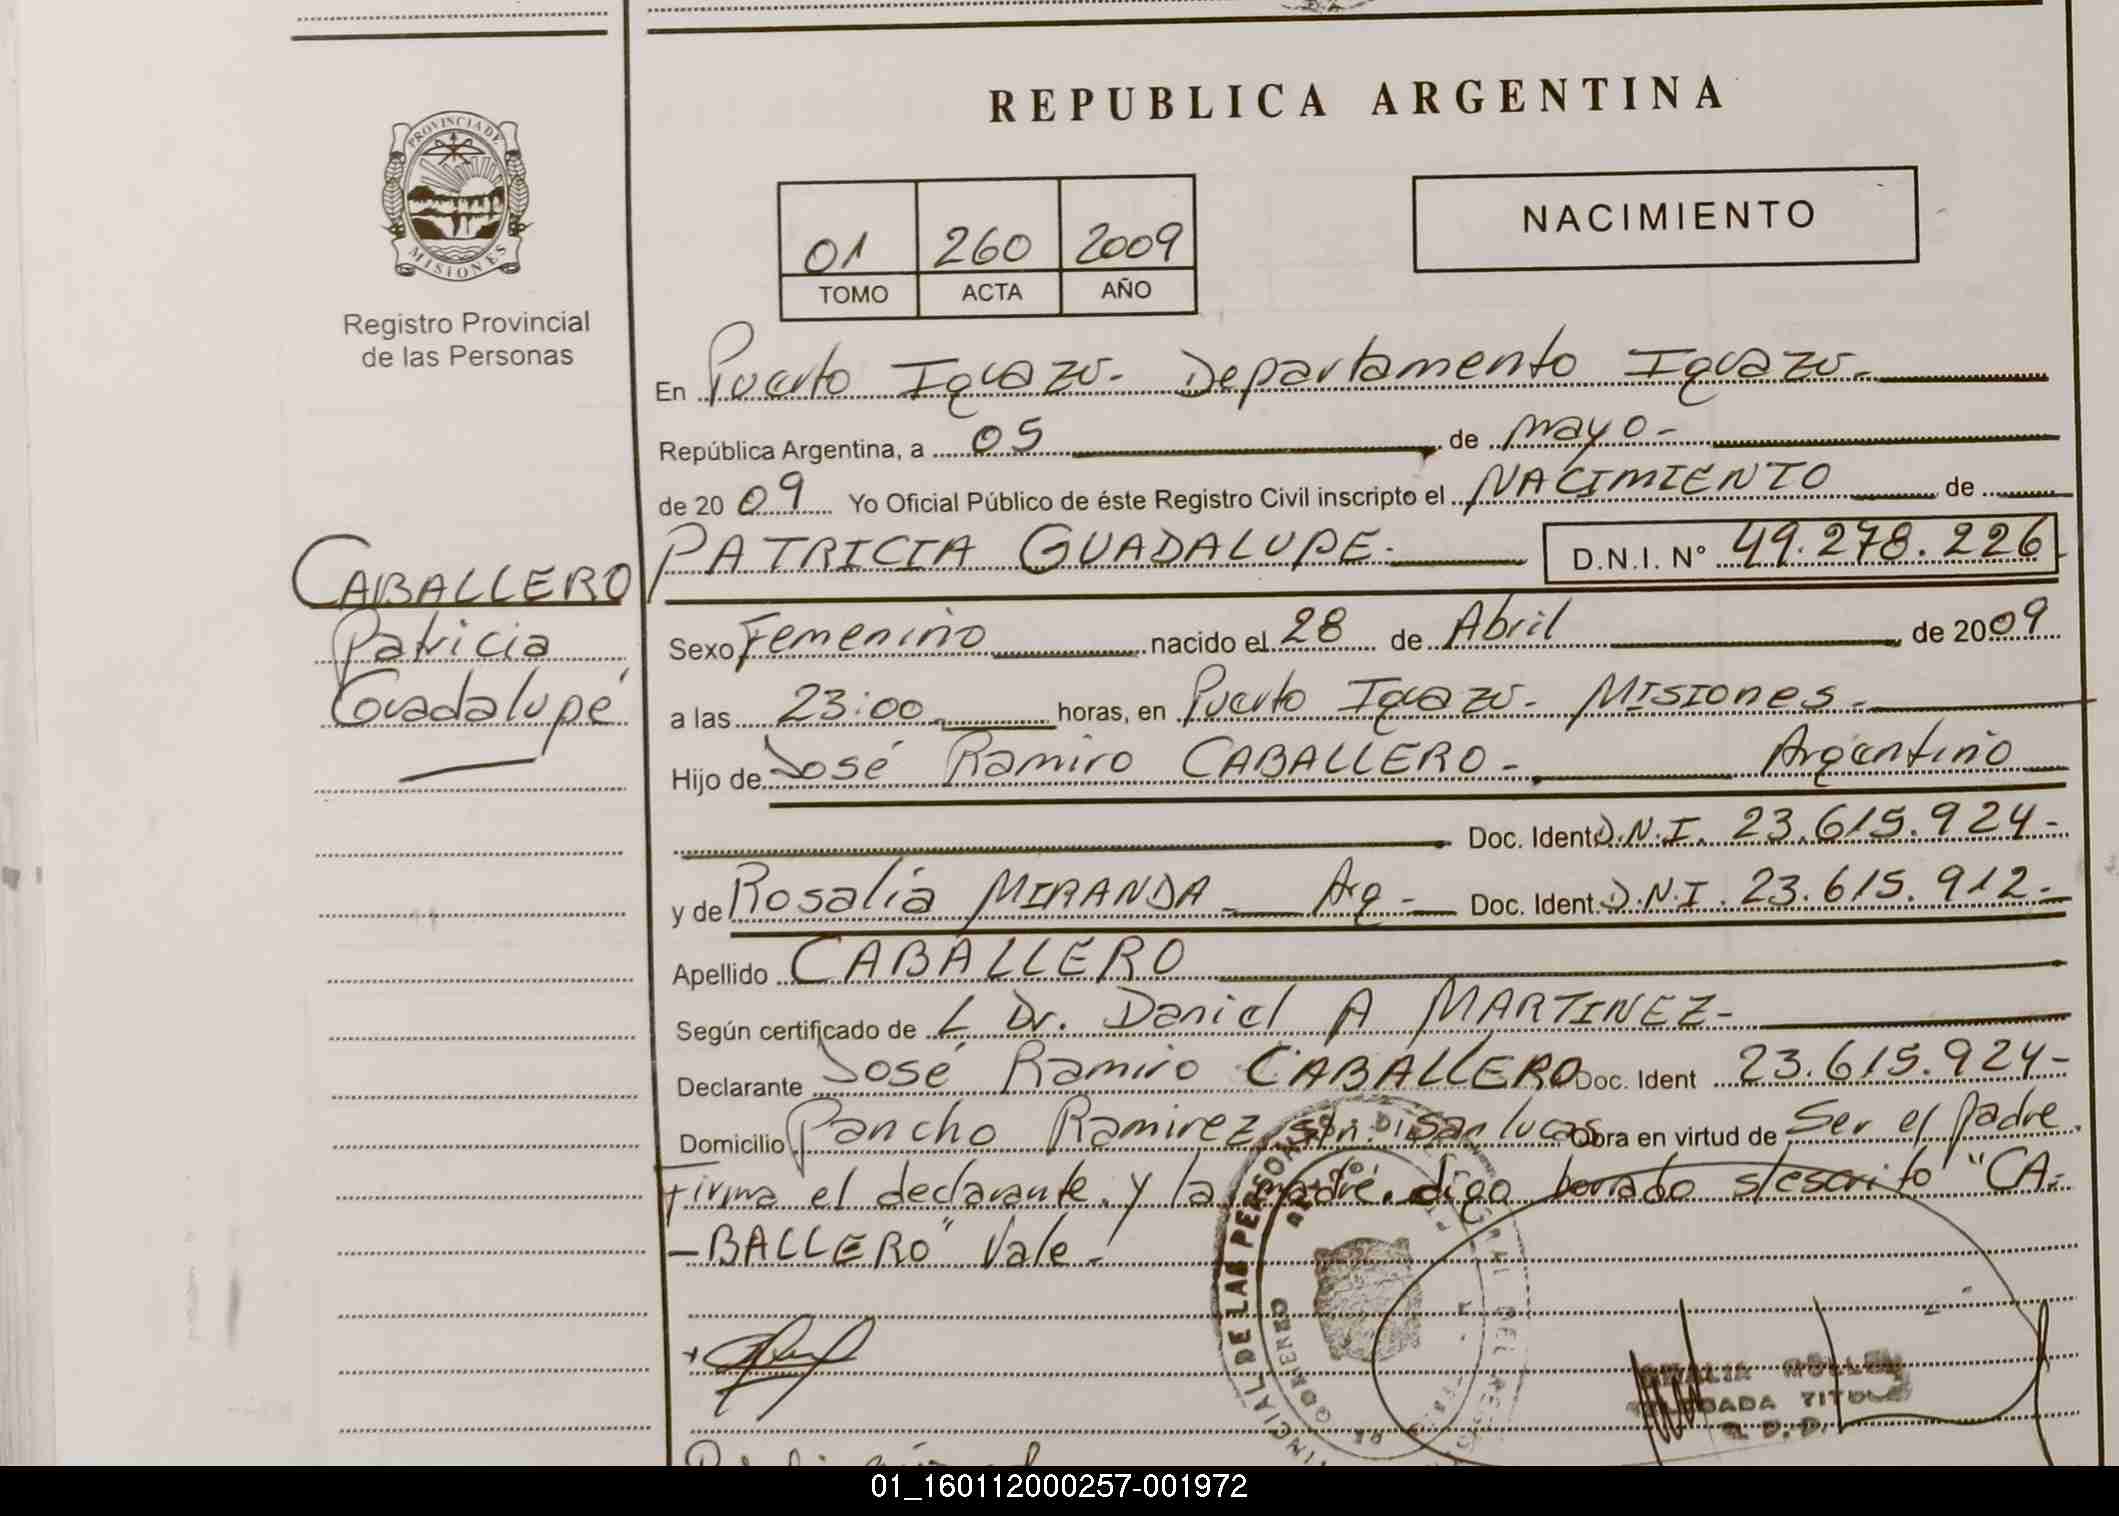 REPUBLICA ARGENTINA
PROVINCIA DE
MISIONES
Registro Provincial
de las Personas
NACIMIENTO
01 260 2009
TOMO ACTA AÑO
En Puerto Iguazú- Departamento Iguazú-
República Argentina, a 05 de mayo-
de 2009 Yo Oficial Público de éste Registro Civil inscripto el NACIMIENTO de
CABALLERO
Patricia
Guadalupe
PATRICIA GUADALUPE- D.N.I. N° 49.278.226
Sexo Femenino nacido el 28 de Abril de 2009
a las 23:00 horas, en Puerto Iguazú- Misiones-
Hijo de José Ramiro CABALLERO- Argentino
Doc. Ident. D.N.I. 23.615.924-
y de Rosalía MIRANDA- Arg- Doc. Ident. D.N.I. 23.615.912-
Apellido CABALLERO
Según certificado de L Dr. Daniel A MARTINEZ-
Declarante José Ramiro CABALLERO Doc. Ident 23.615.924-
Domicilio Pancho Ramirez s/n. San lucas Obra en virtud de Ser el padre.
Firma el declarante. y la madre. digo borrado s/escrito "CA-
-BALLERO" Vale-
DE LAS PERSONAS
GOBIERNO
MÜLLER
DELEGADA TITULAR
01_160112000257-001972